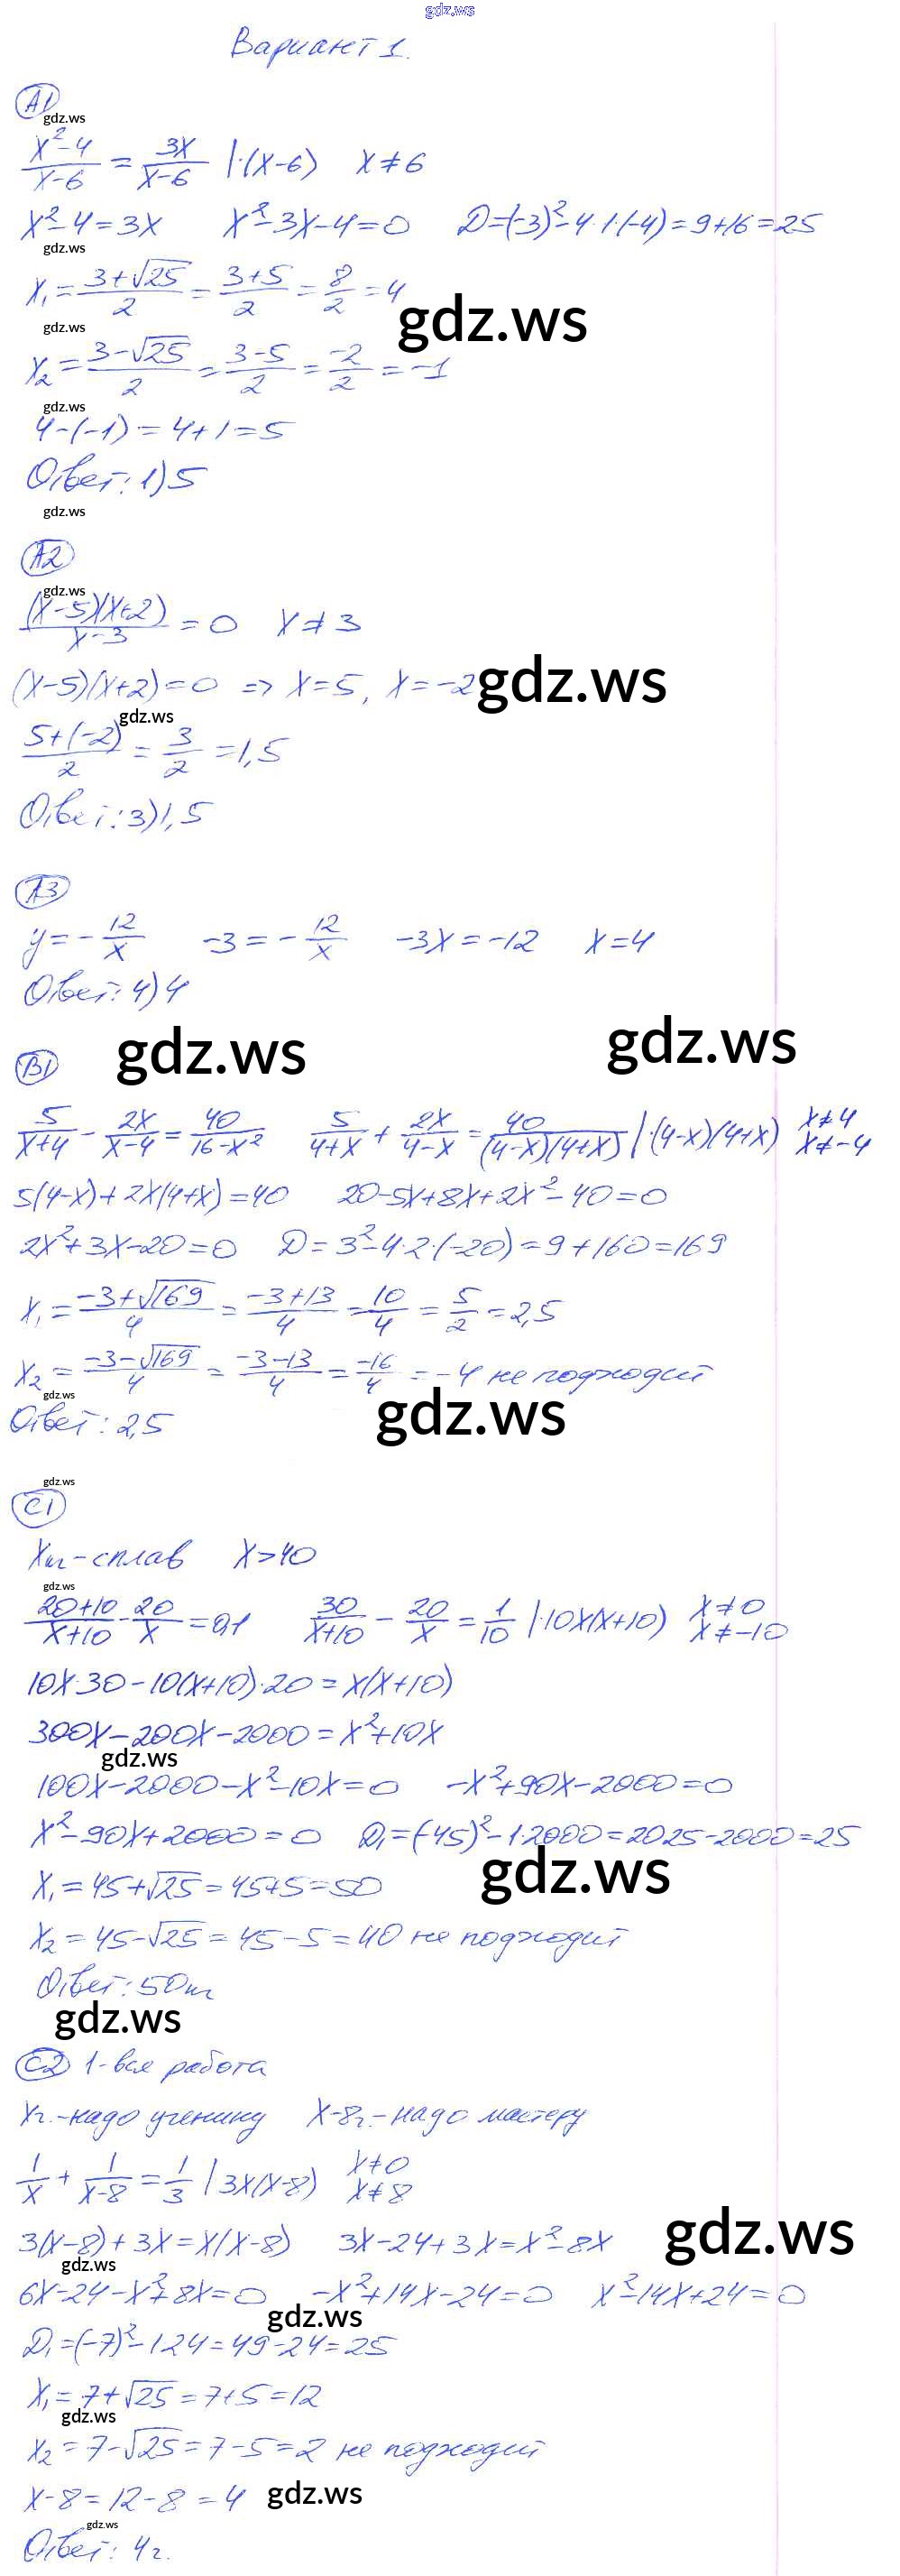 gdz.ws
Вариант 1.
А1
gdz.ws
(x²-4)/(x-6) = 3x/(x-6) |·(x-6) x≠6
x²-4=3x x²-3x-4=0 D=(-3)²-4·1·(-4)=9+16=25
gdz.ws
x₁=(3+√25)/2=(3+5)/2=8/2=4
gdz.ws
gdz.ws
x₂=(3-√25)/2=(3-5)/2=-2/2=-1
gdz.ws
4-(-1)=4+1=5
Ответ: 1) 5
gdz.ws
А2
gdz.ws
(x-5)(x+2)/(x-3)=0 x≠3
(x-5)(x+2)=0 => x=5, x=-2
gdz.ws
gdz.ws
(5+(-2))/2=3/2=1,5
Ответ: 3) 1,5
А3
y=-12/x -3=-12/x -3x=-12 x=4
Ответ: 4) 4
gdz.ws
gdz.ws
В1
5/(x+4)-2x/(x-4)=40/(16-x²) 5/(4+x)+2x/(4-x)=40/((4-x)(4+x)) |·(4-x)(4+x) x≠4 x≠-4
5(4-x)+2x(4+x)=40 20-5x+8x+2x²-40=0
2x²+3x-20=0 D=3²-4·2·(-20)=9+160=169
x₁=(-3+√169)/4=(-3+13)/4=10/4=5/2=2,5
x₂=(-3-√169)/4=(-3-13)/4=-16/4=-4 не подходит
gdz.ws
Ответ: 2,5
gdz.ws
gdz.ws
С1
xт-сплав x>40
gdz.ws
(20+10)/(x+10)-20/x=0,1 30/(x+10)-20/x=1/10 |·10x(x+10) x≠0 x≠-10
10x·30-10(x+10)·20=x(x+10)
300x-200x-2000=x²+10x
gdz.ws
100x-2000-x²-10x=0 -x²+90x-2000=0
x²-90x+2000=0 D₁=(-45)²-1·2000=2025-2000=25
gdz.ws
x₁=45+√25=45+5=50
x₂=45-√25=45-5=40 не подходит
Ответ: 50т
gdz.ws
С2 1-вся работа
xч.-надо ученику x-8ч.-надо мастеру
1/x+1/(x-8)=1/3 |3x(x-8) x≠0 x≠8
3(x-8)+3x=x(x-8) 3x-24+3x=x²-8x
gdz.ws
gdz.ws
6x-24-x²+8x=0 -x²+14x-24=0 x²-14x+24=0
gdz.ws
D₁=(-7)²-1·24=49-24=25
x₁=7+√25=7+5=12
gdz.ws
x₂=7-√25=7-5=2 не подходит
x-8=12-8=4
gdz.ws
gdz.ws
Ответ: 4ч.